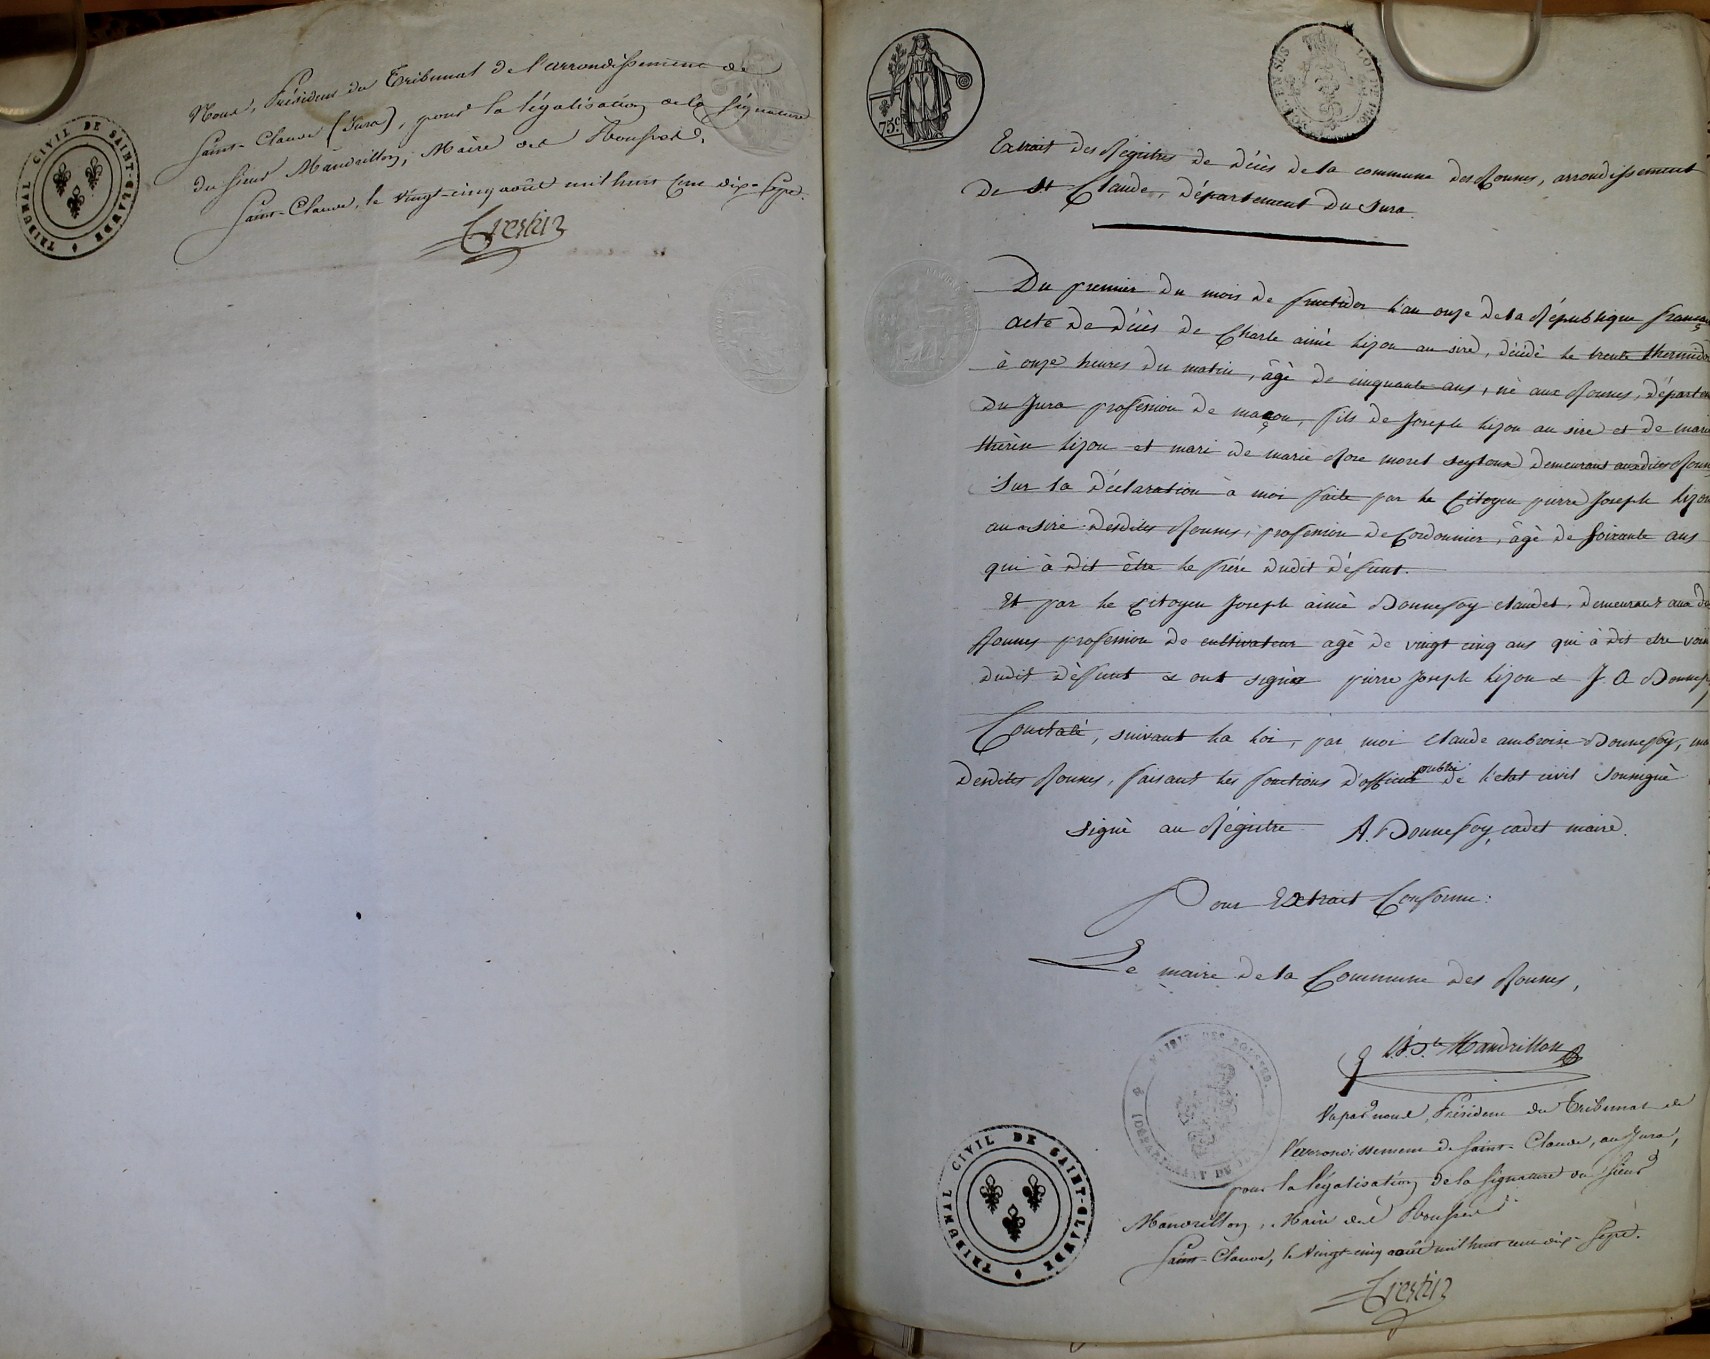 Nous, Président du Tribunal de l'arrondissement de
Saint-Claude (Jura), pour la légalisation de la signature
du sieur Mandrillon, Maire des Rousses.
Saint-Claude, le vingt-cinq août mil huit cent dix-sept.
Crestin
TRIBUNAL CIVIL DE SAINT-CLAUDE
75c
Extrait des Régistres de décès de la commune des Rousses, arrondissement
de St Claude, département du Jura.
Du premier du mois de fructidor l'an onze de la République français
acte de décès de Charle aimé lizon au sire, décédé le trente thermido
à onze heures du matin, âgé de cinquante ans, né aux Rousses, départem
du Jura profession de maçon, fils de Joseph lizon au sire et de marie
thérèse lizon et mari de marie Rose morel seytoux demeurant auxdites Rouss
Sur la déclaration à moi faite par le Citoyen pierre Joseph lizon
au sire desdites Rousses, profession de Cordonnier, âgé de soixante ans
qui à dit être le frére dudit défunt.
Et par le Citoyen Joseph aimé Bonnefoy claudet, demeurant aux d
Rousses profession de cultivateur agé de vingt cinq ans qui à dit etre voisi
dudit défunt & ont signés pierre Joseph lizon & J. A Bonnef
Constaté, suivant la loi, par moi claude ambroise Bonnefoy, ma
desdites Rousses, faisant les fonctions d'officier public de l'etat civil soussigné
signé au Régistre A. Bonnefoy, cadet maire.
Pour Extrait Conforme:
Le maire de la Commune des Rousses,
Mandrillon
MAIRIE DES ROUSSES
DEPARTEMENT DU JURA
Vu par nous, Président du Tribunal de
l'arrondissement de Saint-Claude, au Jura,
pour la légalisation de la signature du sieur
Mandrillon, Maire des Rousses
Saint-Claude, le vingt-cinq août mil huit cent dix-sept.
Crestin
TRIBUNAL CIVIL DE SAINT-CLAUDE